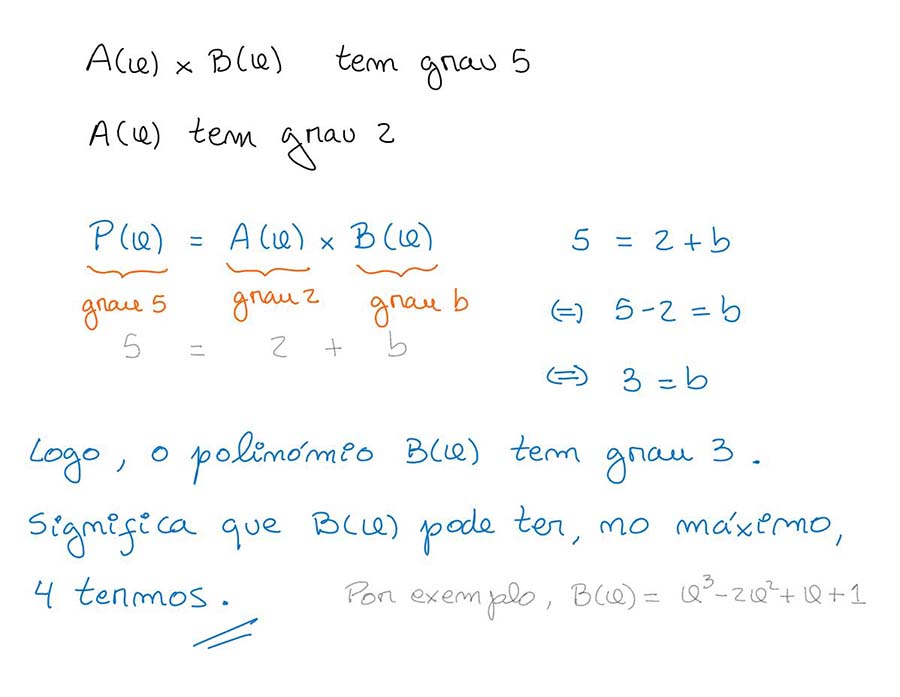 A(x) × B(x) tem grau 5
A(x) tem grau 2
P(x) = A(x) × B(x)
grau 5 grau 2 grau b
5 = 2 + b
5 = 2 + b
(=) 5 - 2 = b
(=) 3 = b
Logo, o polinómio B(x) tem grau 3.
Significa que B(x) pode ter, no máximo,
4 termos. Por exemplo, B(x) = x³-2x²+x+1